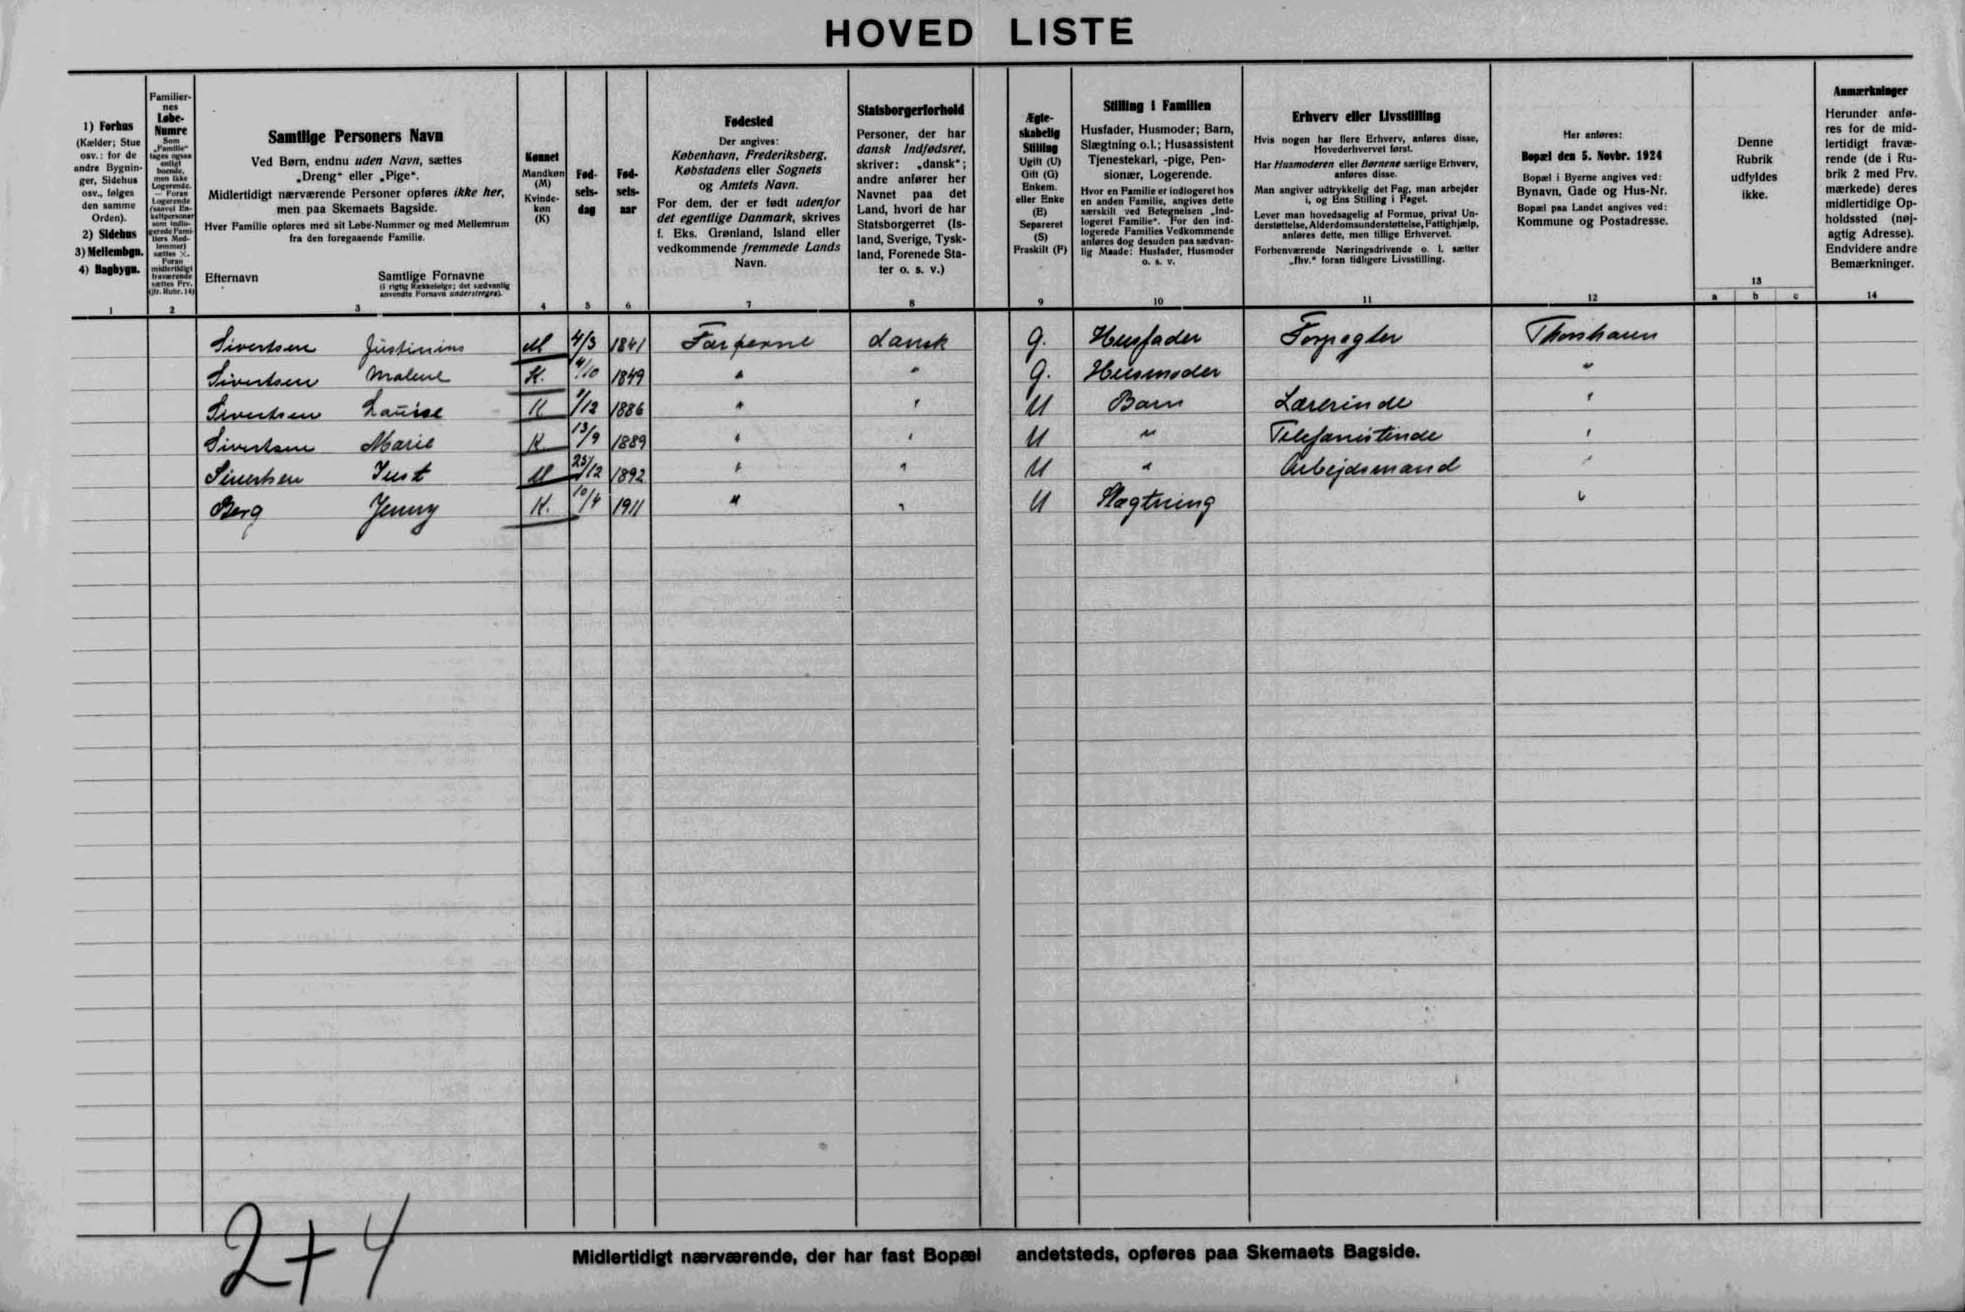 HOVED LISTE
1) Forhus
(Kælder; Stue
osv.: for de
andre Bygnin-
ger, Sidehus
osv., følges
den samme
Orden).
2) Sidehus
3) Mellembgn.
4) Bagbygn.
1
Familier-
nes
Løbe-
Numre
Som
„Familie“
tages ogsaa
enligt
boende,
men ikke
Logerende.
— Foran
Logerende
(saavel En-
keltpersoner
som indlo-
gerede Fami-
liers Med-
lemmer)
sættes ×.
Foran
midlertidigt
fraværende
sættes Frv.
(jfr. Rubr. 14)
2
Samtlige Personers Navn
Ved Børn, endnu uden Navn, sættes
„Dreng“ eller „Pige“.
Midlertidigt nærværende Personer opføres ikke her,
men paa Skemaets Bagside.
Hver Familie opføres med sit Løbe-Nummer og med Mellemrum
fra den foregaaende Familie.
Efternavn Samtlige Fornavne
(i rigtig Rækkefølge; det sædvanlig
anvendte Fornavn understreges).
3
Kønnet
Mandkøn
(M)
Kvinde-
køn
(K)
4
Fød-
sels-
dag
5
Fød-
sels-
aar
6
Fødested
Der angives:
København, Frederiksberg,
Købstadens eller Sognets
og Amtets Navn.
For dem, der er født udenfor
det egentlige Danmark, skrives
f. Eks. Grønland, Island eller
vedkommende fremmede Lands
Navn.
7
Statsborgerforhold
Personer, der har
dansk Indfødsret,
skriver: „dansk“;
andre anfører her
Navnet paa det
Land, hvori de har
Statsborgerret (Is-
land, Sverige, Tysk-
land, Forenede Sta-
ter o. s. v.)
8
Ægte-
skabelig
Stilling
Ugift (U)
Gift (G)
Enkem.
eller Enke
(E)
Separeret
(S)
Fraskilt (F)
9
Stilling i Familien
Husfader, Husmoder; Barn,
Slægtning o.l.; Husassistent
Tjenestekarl, -pige, Pen-
sionær, Logerende.
Hvor en Familie er indlogeret hos
en anden Familie, angives dette
særskilt ved Betegnelsen „Ind-
logeret Familie“. For den ind-
logerede Families Vedkommende
anføres dog desuden paa sædvan-
lig Maade: Husfader, Husmoder
o. s. v.
10
Erhverv eller Livsstilling
Hvis nogen har flere Erhverv, anføres disse,
Hovederhvervet først.
Har Husmoderen eller Børnene særlige Erhverv,
anføres disse.
Man angiver udtrykkelig det Fag, man arbejder
i, og Ens Stilling i Faget.
Lever man hovedsagelig af Formue, privat Un-
derstøttelse, Alderdomsunderstøttelse, Fattighjælp,
anføres dette, men tillige Erhvervet.
Forhenværende Næringsdrivende o. l. sætter
„fhv.“ foran tidligere Livsstilling.
11
Her anføres:
Bopæl den 5. Novbr. 1924
Bopæl i Byerne angives ved:
Bynavn, Gade og Hus-Nr.
Bopæl paa Landet angives ved:
Kommune og Postadresse.
12
Denne
Rubrik
udfyldes
ikke.
13
a b c
Anmærkninger
Herunder anfø-
res for de mid-
lertidigt fravæ-
rende (de i Ru-
brik 2 med Frv.
mærkede) deres
midlertidige Op-
holdssted (nøj-
agtig Adresse).
Endvidere andre
Bemærkninger.
14
Sivertsen Justinius M 4/3 1841 Færøerne dansk g. Husfader Forpagter Thorshavn
Sivertsen Malene K. 4/10 1849 " " g. Husmoder "
Sivertsen Louise K /12 1886 " " U Barn Lærerinde "
Sivertsen Marie K 13/9 1889 " " U " Telefonistinde "
Sivertsen Just M 25/12 1892 " " U " Arbejdsmand "
Berg Jenny K. 10/4 1911 " " U Slægtning "
2+4
Midlertidigt nærværende, der har fast Bopæl andetsteds, opføres paa Skemaets Bagside.